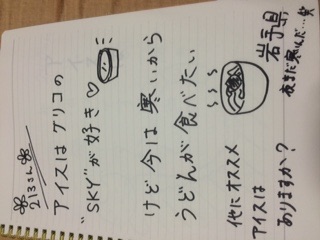 213さん
アイスはグリコの
"SKY"が好き♡
けど今は寒いから
うどんが食べたい
他にオススメ
アイスは
ありますか?
岩手県
まだ寒んだ…笑